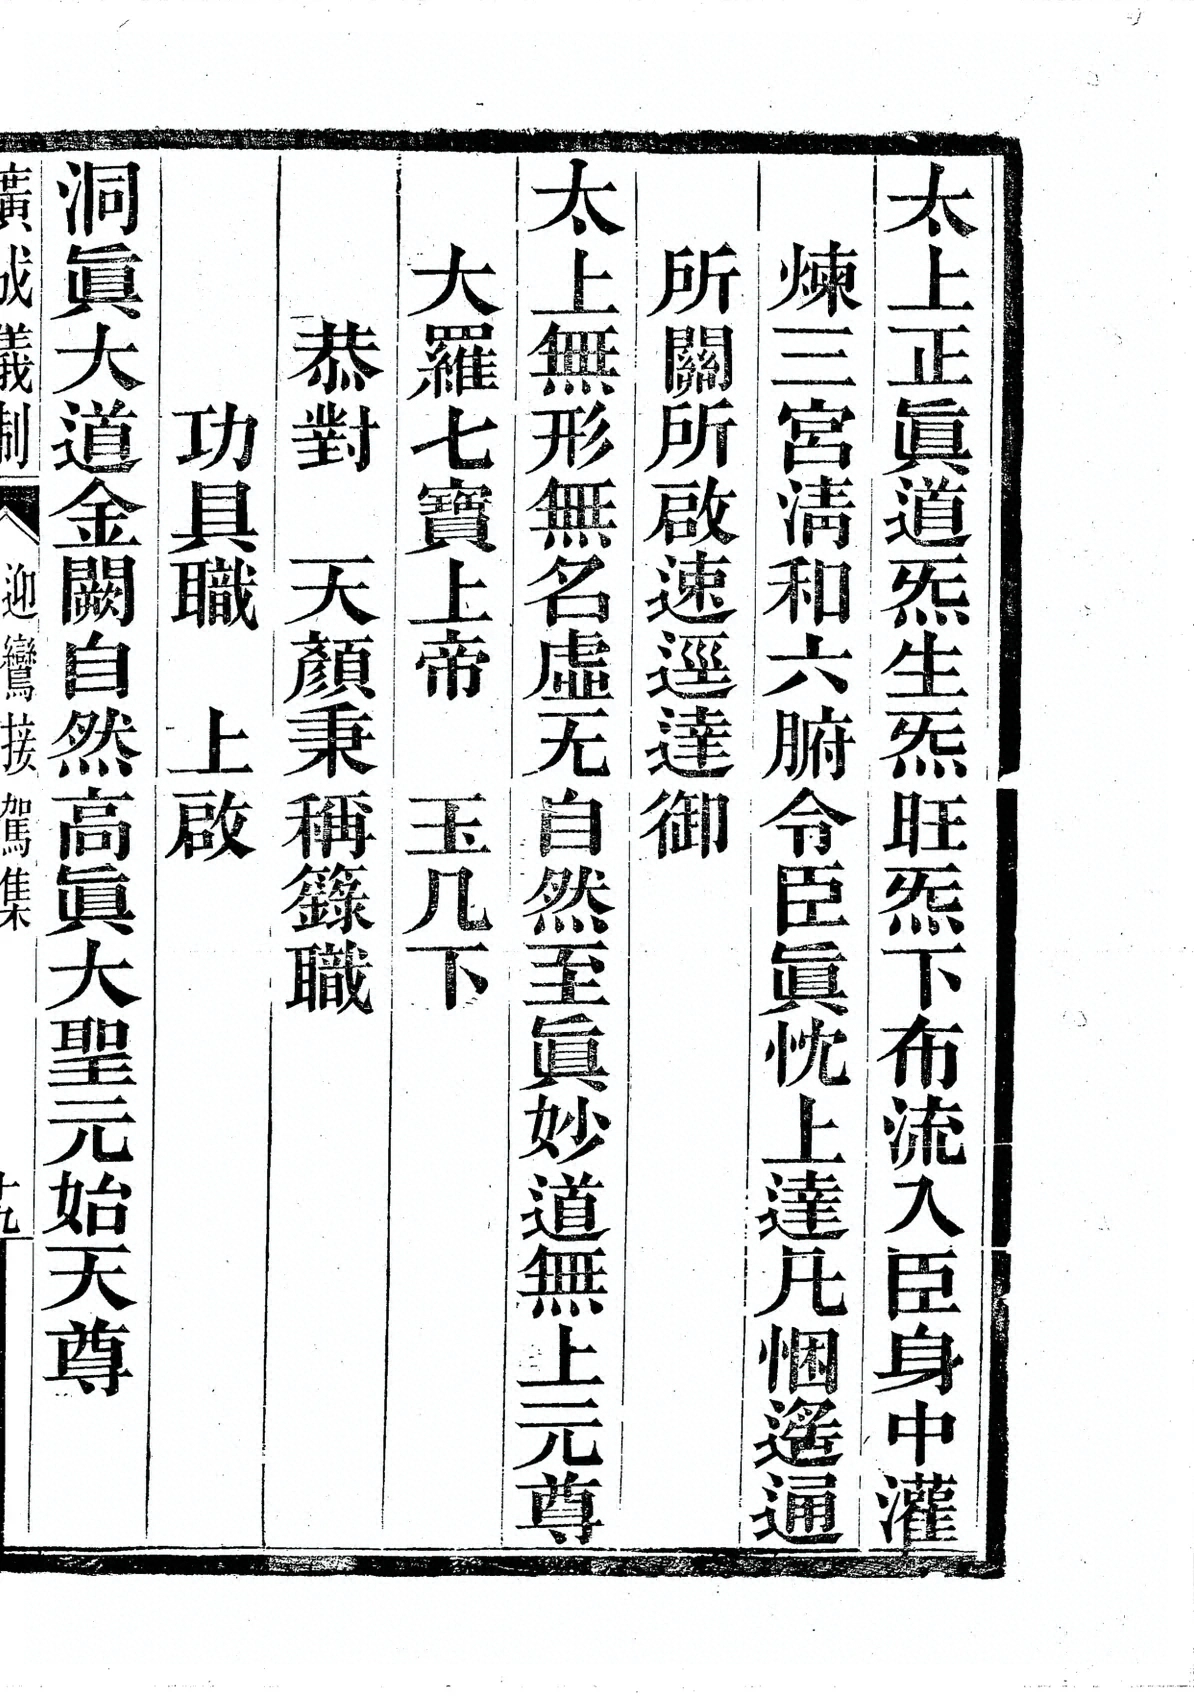 太上正眞道炁生炁旺炁下布流入臣身中灌
煉三宮淸和六腑令臣眞忱上達凡悃遙通
所關所啟速逕達御
太上無形無名虛无自然至眞妙道無上元尊
大羅七寶上帝　玉几下
恭對　天顏秉稱籙職
功具職　上啟
洞眞大道金闕自然高眞大聖元始天尊
廣成儀制　迎鸞接駕集　十九